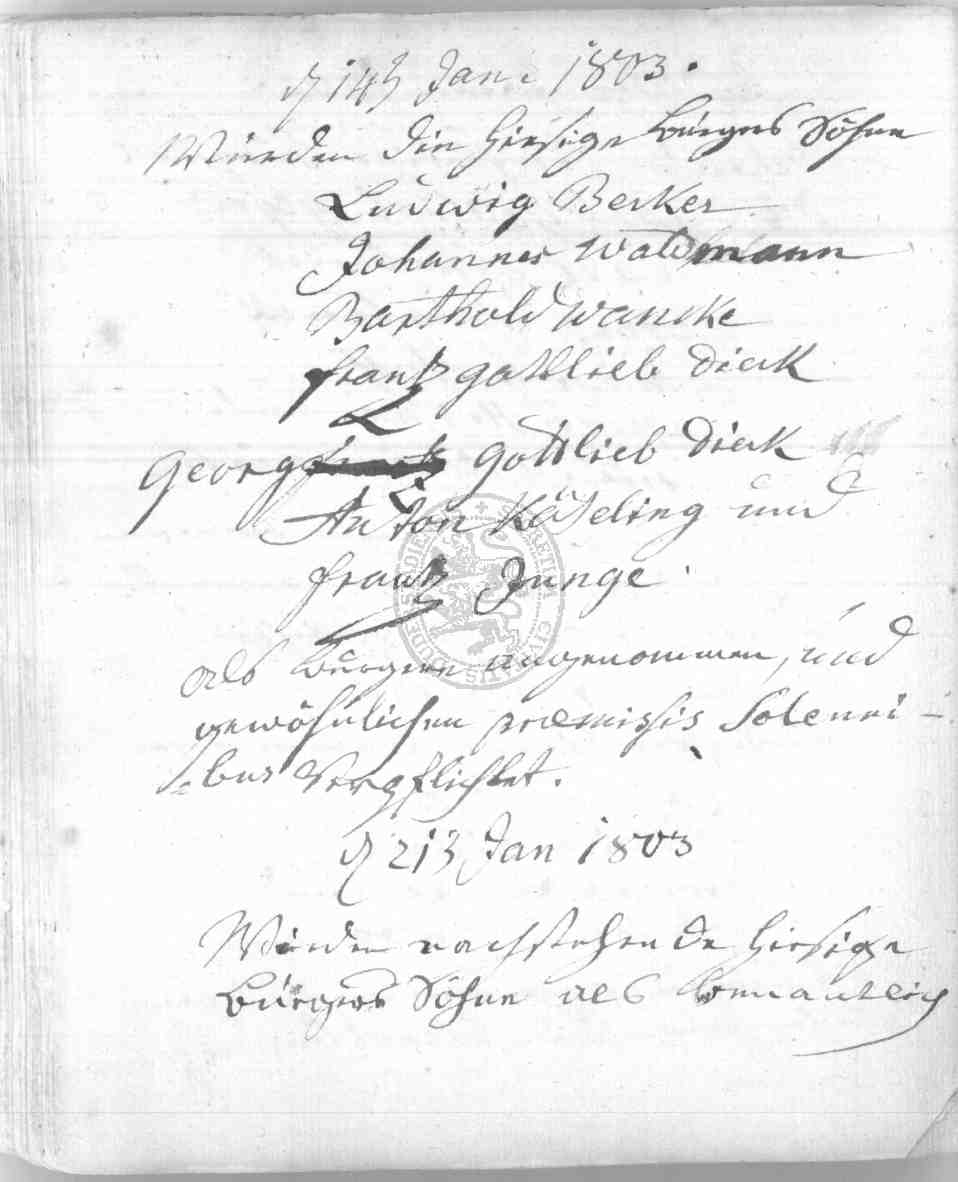 d 14t Jan: 1803.
Wurden die hiesige Bürgers Söhne
Ludwig Becker
Johannes Waldmann
Barthold Wancke
frantz gottlieb Dieck
Georg gottlieb Dieck
Anton Käseling und
frantz Junge.
als Bürgere angenommen, und
gewöhnlichen praemissis Solenni-
=bus Verpflichtet.
d 21t Jan 1803
Wurden nachstehende hiesige
Bürgers Söhne als